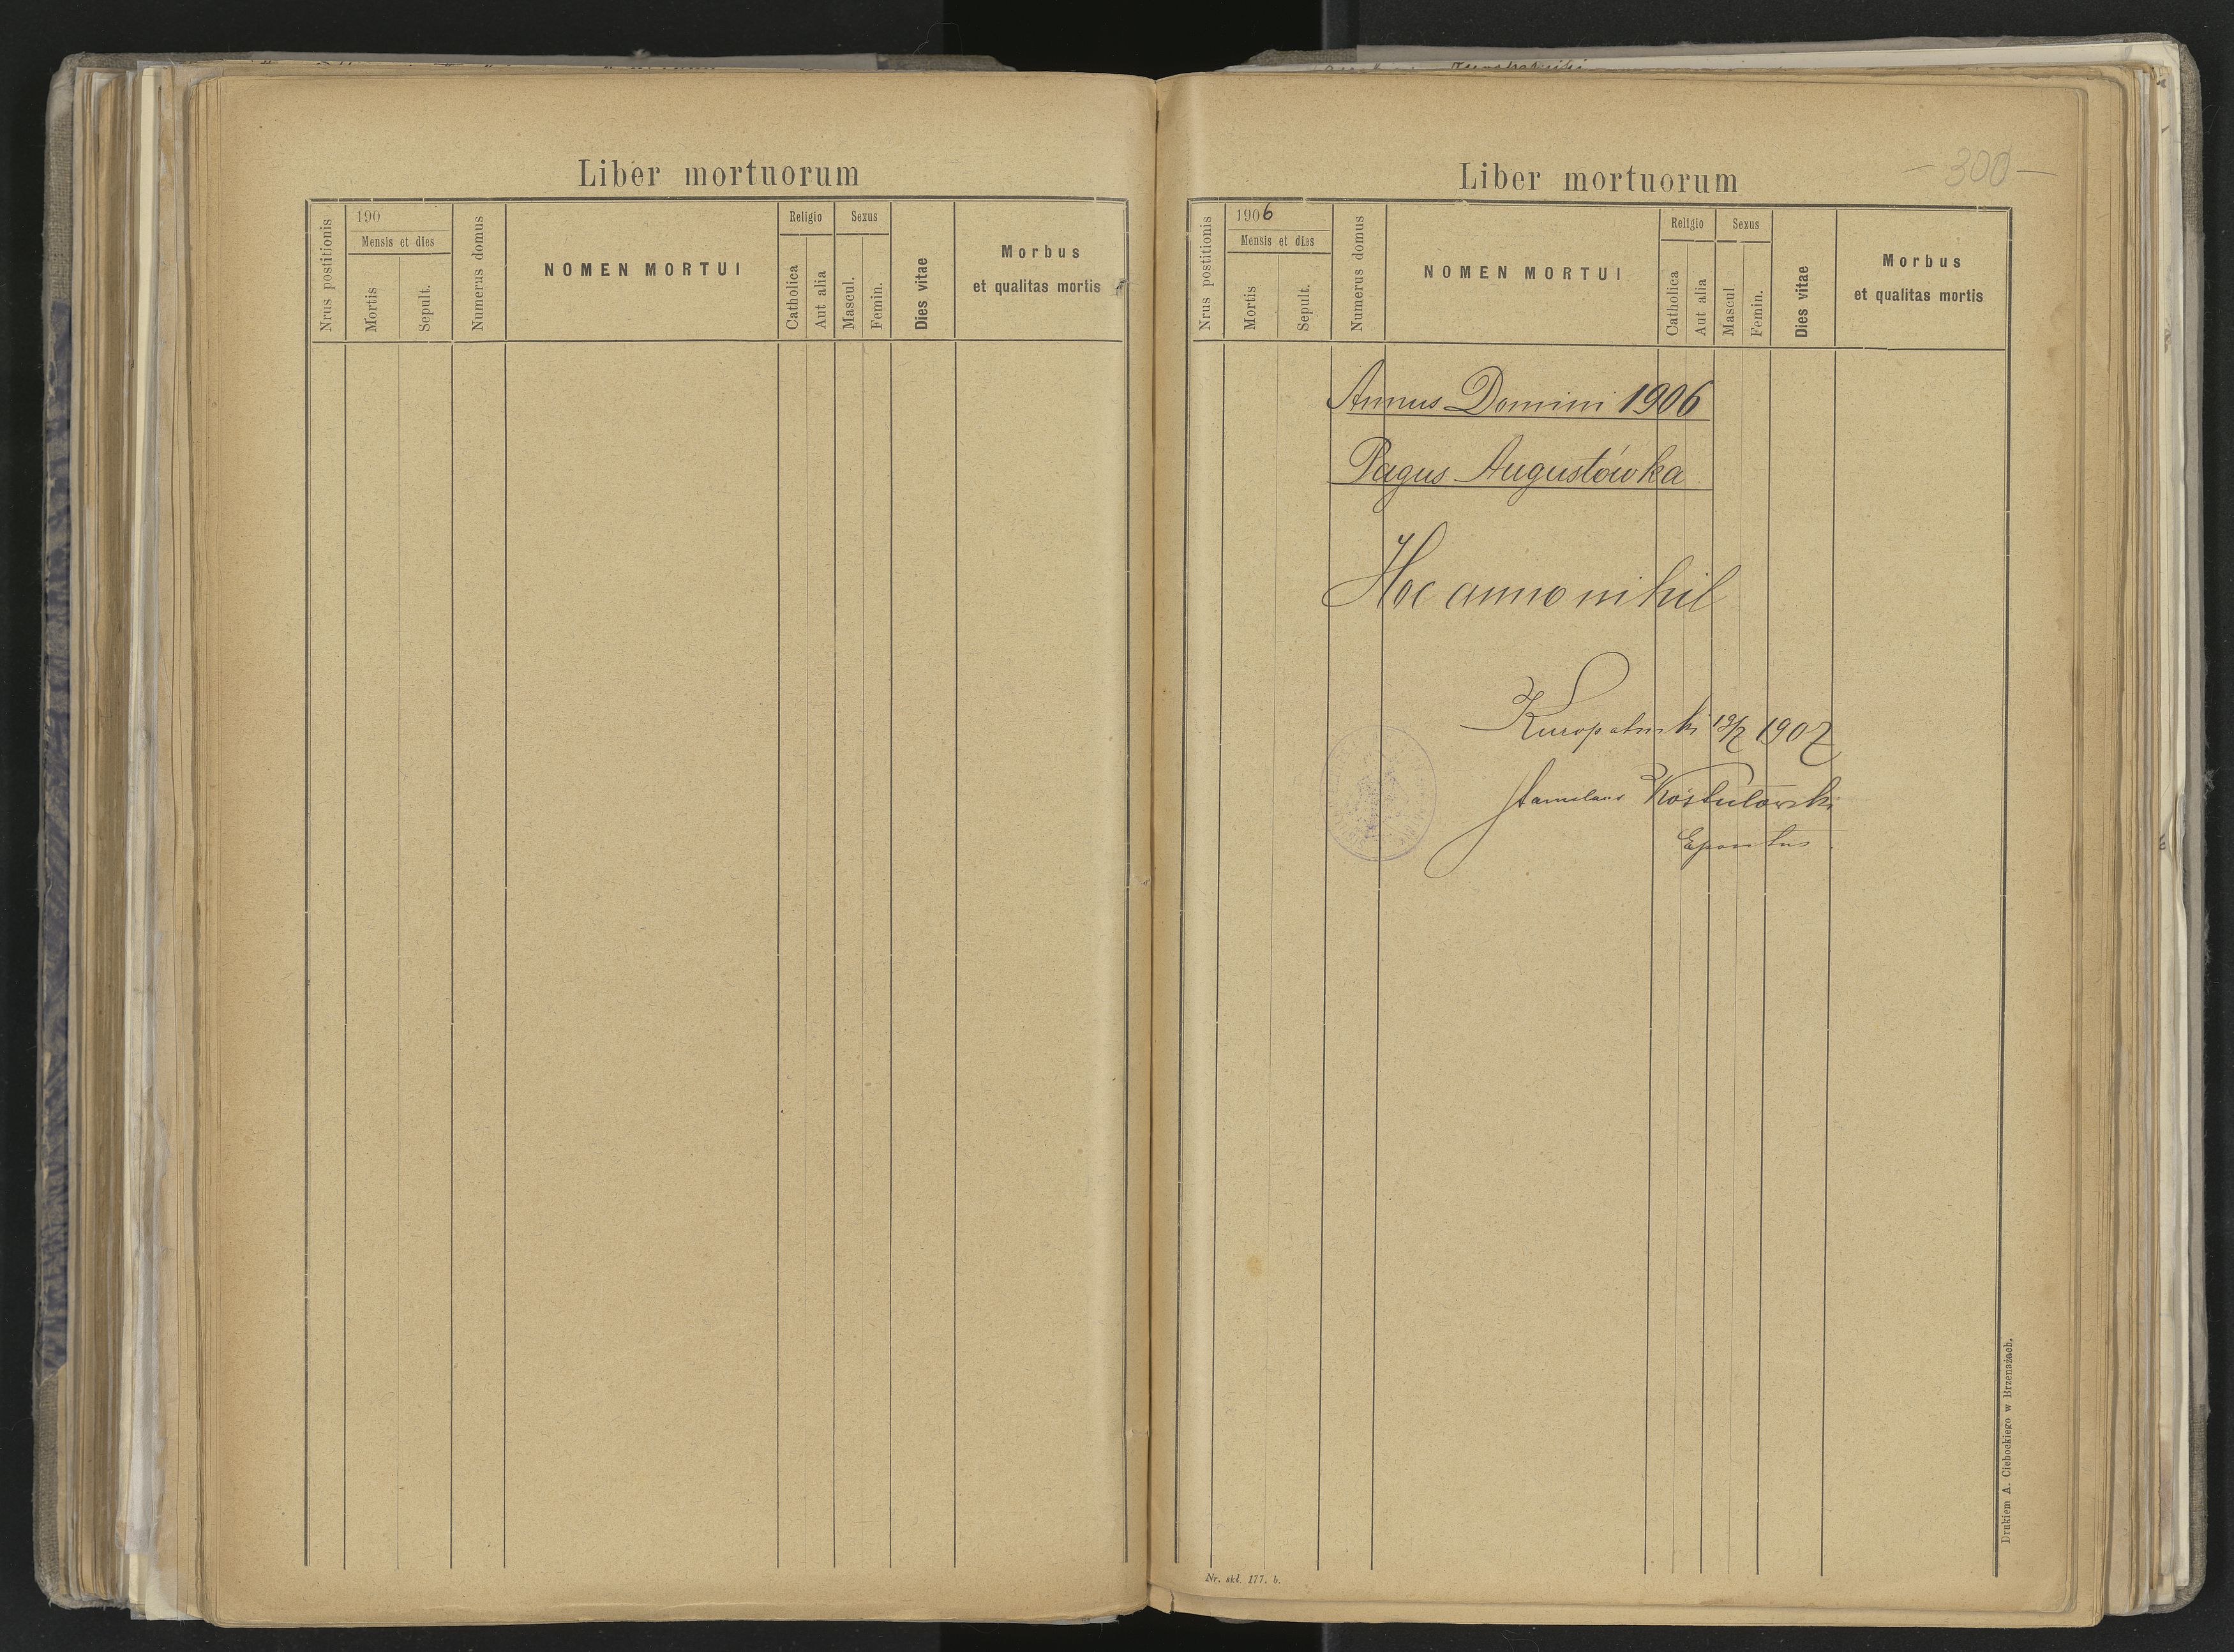 Liber mortuorum
Nrus postitionis
190
Mensis et dies
Mortis
Sepult.
Numerus domus
NOMEN MORTUI
Religio
Catholica
Aut alia
Sexus
Mascul.
Femin.
Dies vitae
Morbus
et qualitas mortis
- 300 -
Liber mortuorum
Nrus postitionis
1906
Mensis et dies
Mortis
Sepult.
Numerus domus
NOMEN MORTUI
Religio
Catholica
Aut alia
Sexus
Mascul
Femin.
Dies vitae
Morbus
et qualitas mortis
Annus Domini 1906
Pagus Augustówka
Hoc anno nihil
1907
Stanislaus
Drukiem A. Ciebockiego w Brzeżanach.
Nr. skł. 177. b.